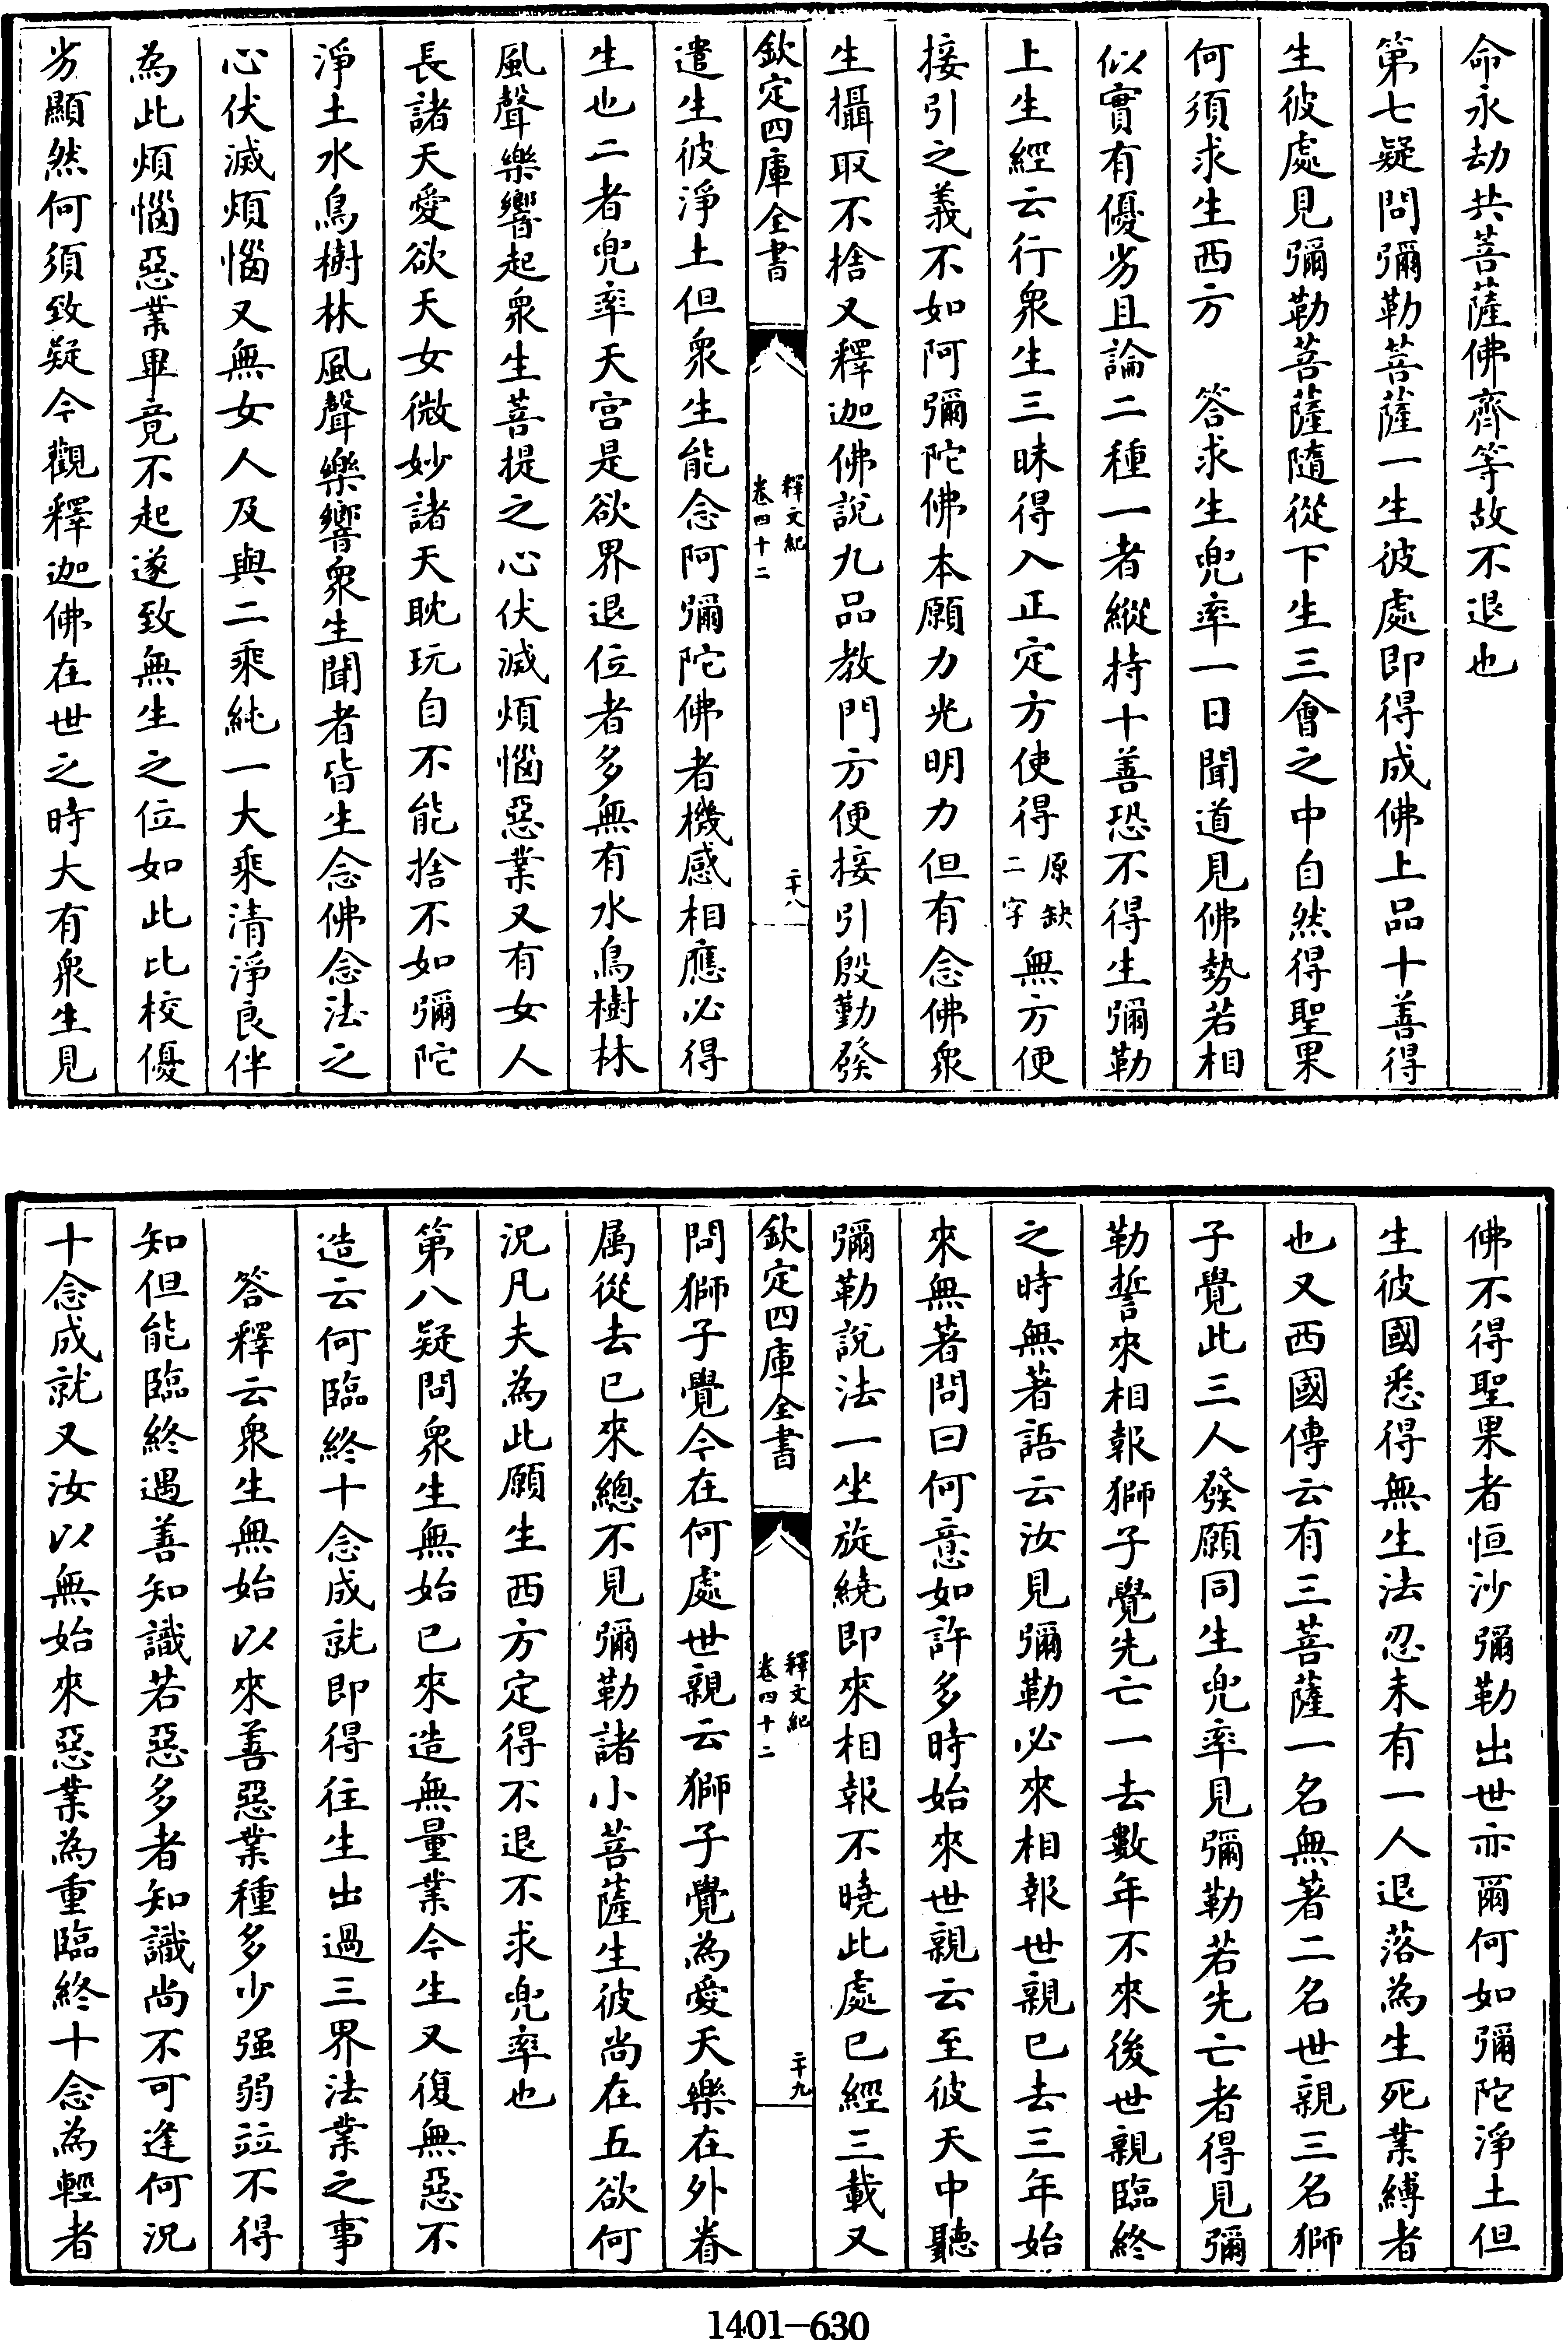 命永劫共菩薩佛齊等故不退也
第七疑問彌勒菩薩一生彼處即得成佛上品十善得
生彼處見彌勒菩薩隨從下生三會之中自然得聖果
何須求生西方　答求生兜率一日聞道見佛勢若相
似實有優劣且論二種一者縱持十善恐不得生彌勒
上生經云行衆生三昧得入正定方使得原缺二字無方便
接引之義不如阿彌陀佛本願力光明力但有念佛衆
生攝取不捨又釋迦佛說九品教門方便接引殷勤發
欽定四庫全書
釋文紀
卷四十二
二十八
遣生彼淨土但衆生能念阿彌陀佛者機感相應必得
生也二者兜率天宮是欲界退位者多無有水鳥樹林
風聲樂響起衆生菩提之心伏滅煩惱惡業又有女人
長諸天愛欲天女微妙諸天耽玩自不能捨不如彌陀
淨土水鳥樹林風聲樂響衆生聞者皆生念佛念法之
心伏滅煩惱又無女人及與二乘純一大乘清淨良伴
為此煩惱惡業畢竟不起遂致無生之位如此比校優
劣顯然何須致疑今觀釋迦佛在世之時大有衆生見
佛不得聖果者恒沙彌勒出世亦爾何如彌陀淨土但
生彼國悉得無生法忍未有一人退落為生死業縛者
也又西國傳云有三菩薩一名無著二名世親三名獅
子覺此三人發願同生兜率見彌勒若先亡者得見彌
勒誓來相報獅子覺先亡一去數年不來後世親臨終
之時無著語云汝見彌勒必來相報世親已去三年始
來無著問曰何意如許多時始來世親云至彼天中聽
彌勒說法一坐旋繞即來相報不曉此處已經三載又
欽定四庫全書
釋文紀
卷四十二
二十九
問獅子覺今在何處世親云獅子覺為愛天樂在外眷
属從去已來總不見彌勒諸小菩薩生彼尚在五欲何
況凡夫為此願生西方定得不退不求兜率也
第八疑問衆生無始已來造無量業今生又復無惡不
造云何臨終十念成就即得往生出過三界法業之事
答釋云衆生無始以來善惡業種多少强弱竝不得
知但能臨終遇善知識若惡多者知識尚不可逢何況
十念成就又汝以無始來惡業為重臨終十念為輕者
1401-630